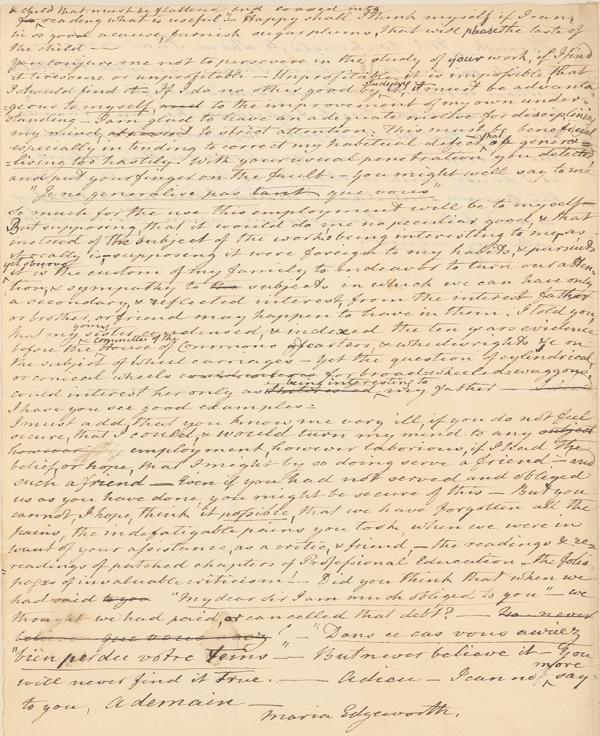 a child that must be flattered and coaxed into
reading what is useful — Happy shall I think myself if I can,
in so good a cause, furnish sugarplums, that will please the taste of
the child —
You conjure me not to persevere in the study of your work, if I find
it tiresome or unprofitable — Unprofitable it is impossible that
I should find it — If I do no other good it must be advanta
geous to myself, and to the improvement of my own under-
standing — I am glad to have an adequate motive for disciplining
my mind, to strict attention. This must be beneficial
especially in tending to correct my habitual defect, that of genera=
lising too hastily. With your usual penetration you detected
and put your finger on the fault. — You might well say to me
"Je ne generalise pas tant que vous"
So much for the use this employment will be to myself —
But supposing that it would do me no peculiar good, & that
instead of the subject of the work being interesting to me, as
it really is — supposing it were foreign to my habits, & pursuits
yet
it is the custom of my family to endeavor to turn our atten
tion, & sympathy to the subjects in which we can have only
a secondary & reflected interest, from the interest father
or brother, or friend may happen to have in them. I told you
that my young sister condensed & indexed the ten years evidence
before the committee of the House of Commons of carters, & wheelwrights &c on
the subject of wheel carriages — yet the question of cylindrical,
or conical wheels for broadwheeled waggons,
could interest her only as being interesting to my father —
I have you see good examples —
I must add, that you know me very ill, if you do not feel
secure, that I could, & would turn my mind to any subject
however employment, however laborious, if I had the
belief, or hope, that I might by so doing serve a friend — and
such a friend — Even if you had not served and obliged
us as you have done, you might be secure of this — But you
cannot, I hope, think it possible, that we have forgotten all the
pains, the indefatigable pains you took, when we were in
want of your assistance, as a critic, & friend, — the readings & re=
readings of patched chapters of Professional Education — the folio
pages of invaluable criticism — Did you think that when we
had said to you "My dear Sir I am much obliged to you" — we
thought we had paid, or cancelled that debt? —
"Dans ce cas vous auriez
"bien perdu votre tems" — But never believe it — You
will never find it true. — Adieu — I can no more say
to you, A demain —
Maria Edgeworth.